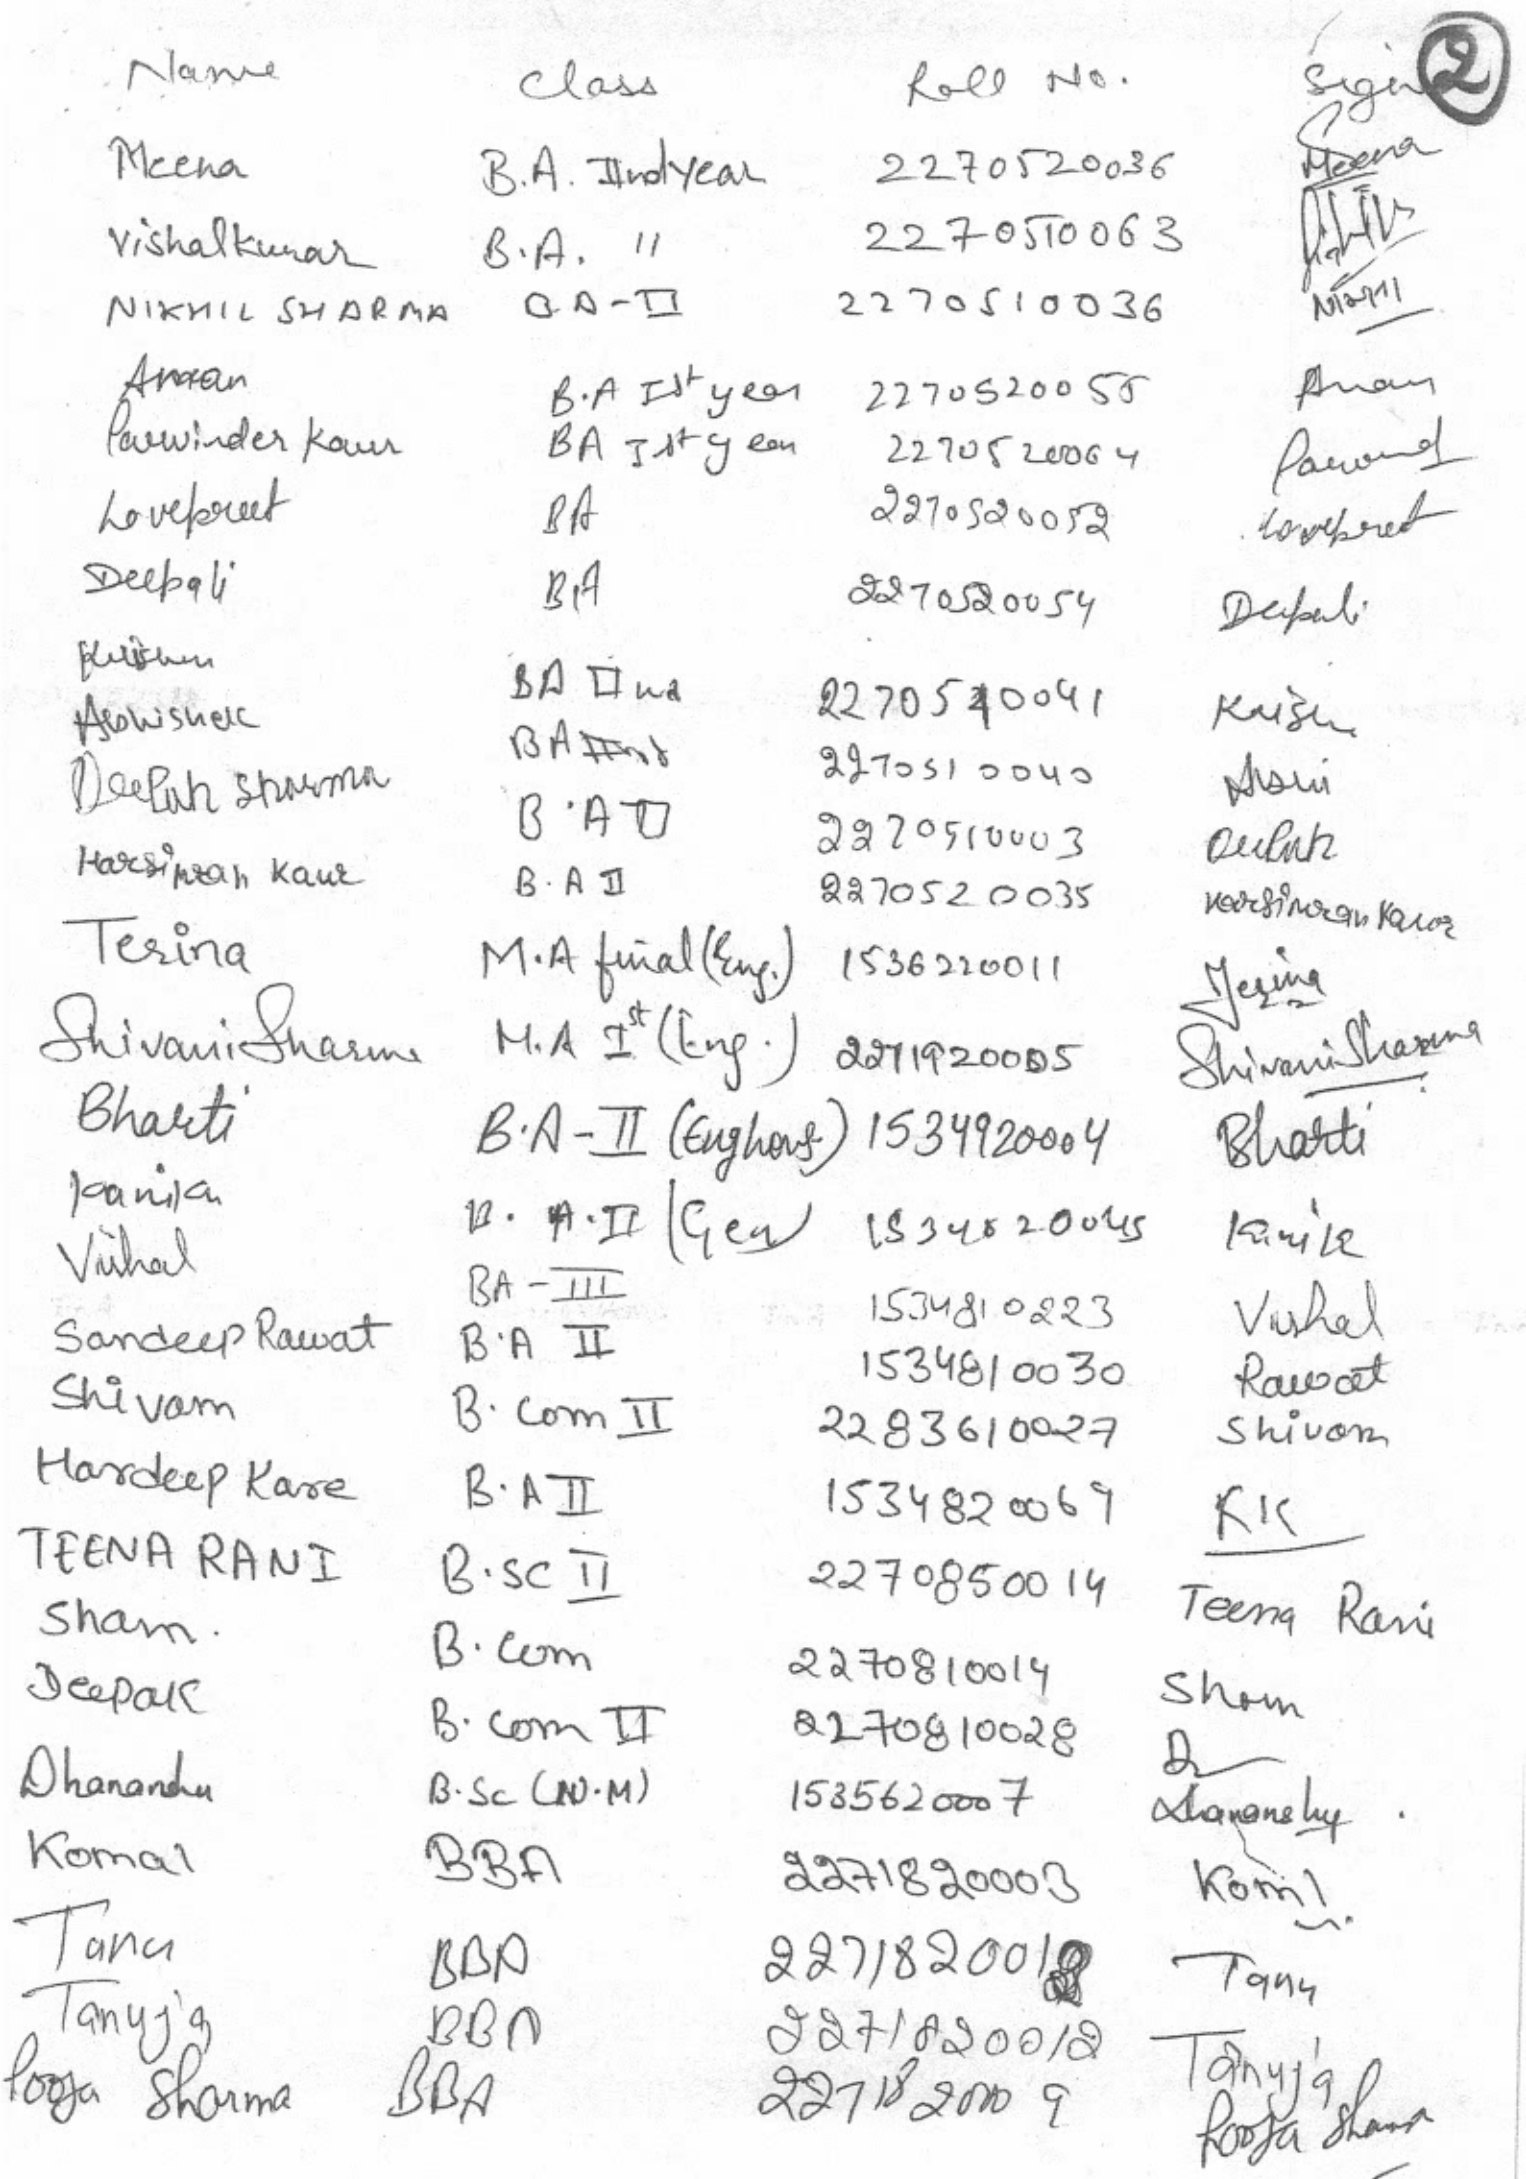 Name Class Roll No. Sign 2
Meena B.A. IInd Year 2270520036 Meena
Vishal kumar B.A. " 2270510063
NIKHIL SHARMA B A - II 2270510036
Aman B.A Ist year 2270520055 Aman
Parwinder Kaur BA Ist year 2270520064
Lovepreet BA 2270520052 Lovepreet
Deepali BA 2270520054 Deepali
Krishan BA IInd 2270510041
Abhishek BA IInd 2270510040
Deepak Sharma B.A II 2270510003 Deepak
Harsimran Kaur B.A II 2270520035 Harsimran Kaur
Tesina M.A final (Eng.) 1536220011 Tesina
Shivani Sharma M.A Ist (Eng.) 2271920005 Shivani Sharma
Bharti B.A-II (Eng hons) 1534920004 Bharti
Kanika B. A.II (Gen) 1534820045
Vishal BA-III 1534810223 Vishal
Sandeep Rawat B.A II 1534810030 Rawat
Shivam B.Com II 2283610027 Shivam
Hardeep Kare B.A II 1534820069 KK
TEENA RANI B.SC II 2270850014 Teena Rani
Sham. B.Com 2270810014 Sham
Deepak B.Com II 2270810028 D
Dhananshu B.Sc (N.M) 1535620007 Dhananshu.
Komal BBA 2271820003 Komal
Tanu BBA Tanu
Tanuja BBA 2271820012 Tanuja
Pooja Sharma BBA 2271820009 Pooja Sharma